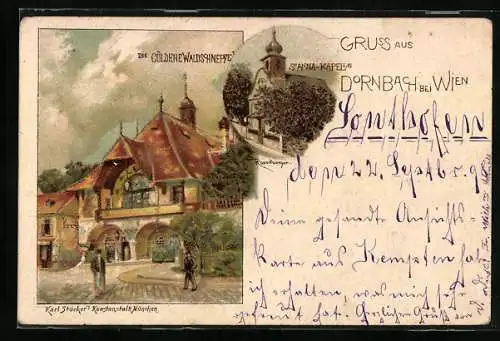 DIE GÜLDENE WALDSCHNEPFE
ST ANNA-KAPELLE
GRUSS AUS
DORNBACH BEI WIEN
Sonthofen
den 22. Septbr. 9
Deine gesandte Ansichts-
karte aus Kempten hab
ich erhalten, was mich sehr
gefreut hat. Gruß von
Karl Stücker's Kunstanstalt, München